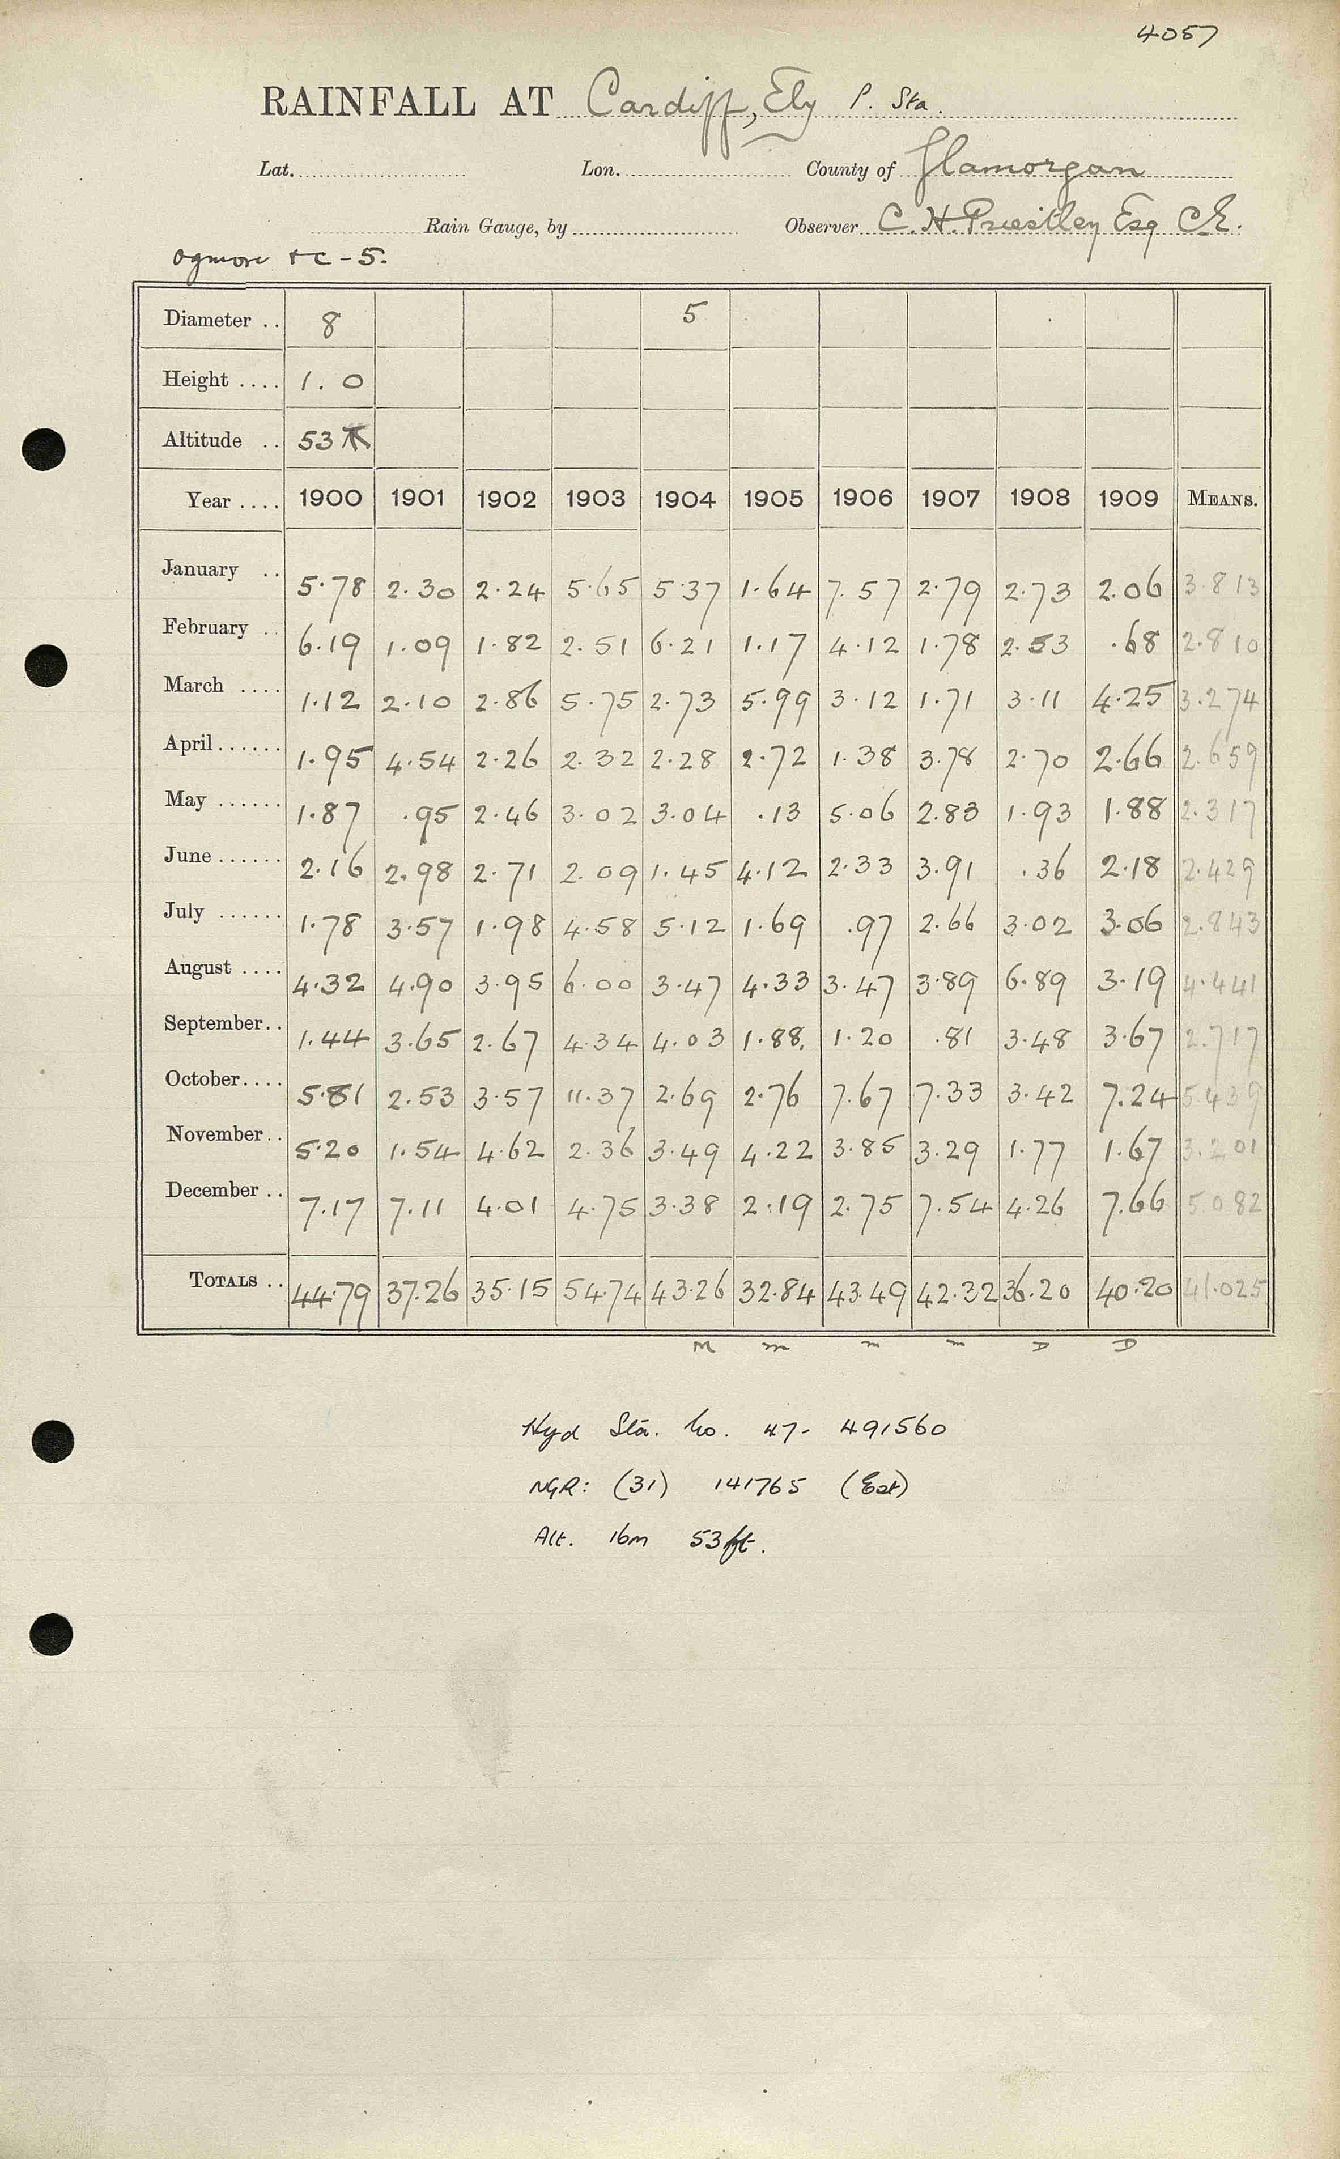 4057
RAINFALL AT Cardiff, Ely P. Sta.
Lat. Lon. County of Glamorgan
Rain Gauge, by Observer C. H. Priestley Esq C.E.
Ogmore &c - 5.
Diameter .. 8 5
Height .... 1.0
Altitude .. 53
Year .... 1900 1901 1902 1903 1904 1905 1906 1907 1908 1909 MEANS.
January .. 5.78 2.30 2.24 5.65 5.37 1.64 7.57 2.79 2.73 2.06 3.813
February .. 6.19 1.09 1.82 2.51 6.21 1.17 4.12 1.78 2.53 .68 2.810
March .... 1.12 2.10 2.86 5.75 2.73 5.99 3.12 1.71 3.11 4.25 3.274
April ...... 1.95 4.54 2.26 2.32 2.28 2.72 1.38 3.78 2.70 2.66 2.659
May ...... 1.87 .95 2.46 3.02 3.04 .13 5.06 2.83 1.93 1.88 2.317
June ...... 2.16 2.98 2.71 2.09 1.45 4.12 2.33 3.91 .36 2.18 2.429
July ...... 1.78 3.57 1.98 4.58 5.12 1.69 .97 2.66 3.02 3.06 2.843
August .... 4.32 4.90 3.95 6.00 3.47 4.33 3.47 3.89 6.89 3.19 4.441
September .. 1.44 3.65 2.67 4.34 4.03 1.88 1.20 .81 3.48 3.67 2.717
October .... 5.81 2.53 3.57 11.37 2.69 2.76 7.67 7.33 3.42 7.24 5.439
November .. 5.20 1.54 4.62 2.36 3.49 4.22 3.85 3.29 1.77 1.67 3.201
December .. 7.17 7.11 4.01 4.75 3.38 2.19 2.75 7.54 4.26 7.66 5.082
TOTALS .. 44.79 37.26 35.15 54.74 43.26 32.84 43.49 42.32 36.20 40.20 41.025
M m m m D D
Hyd Sta. No. 47- 491560
NGR: (31) 141765 (Est)
Alt. 16m 53 ft.